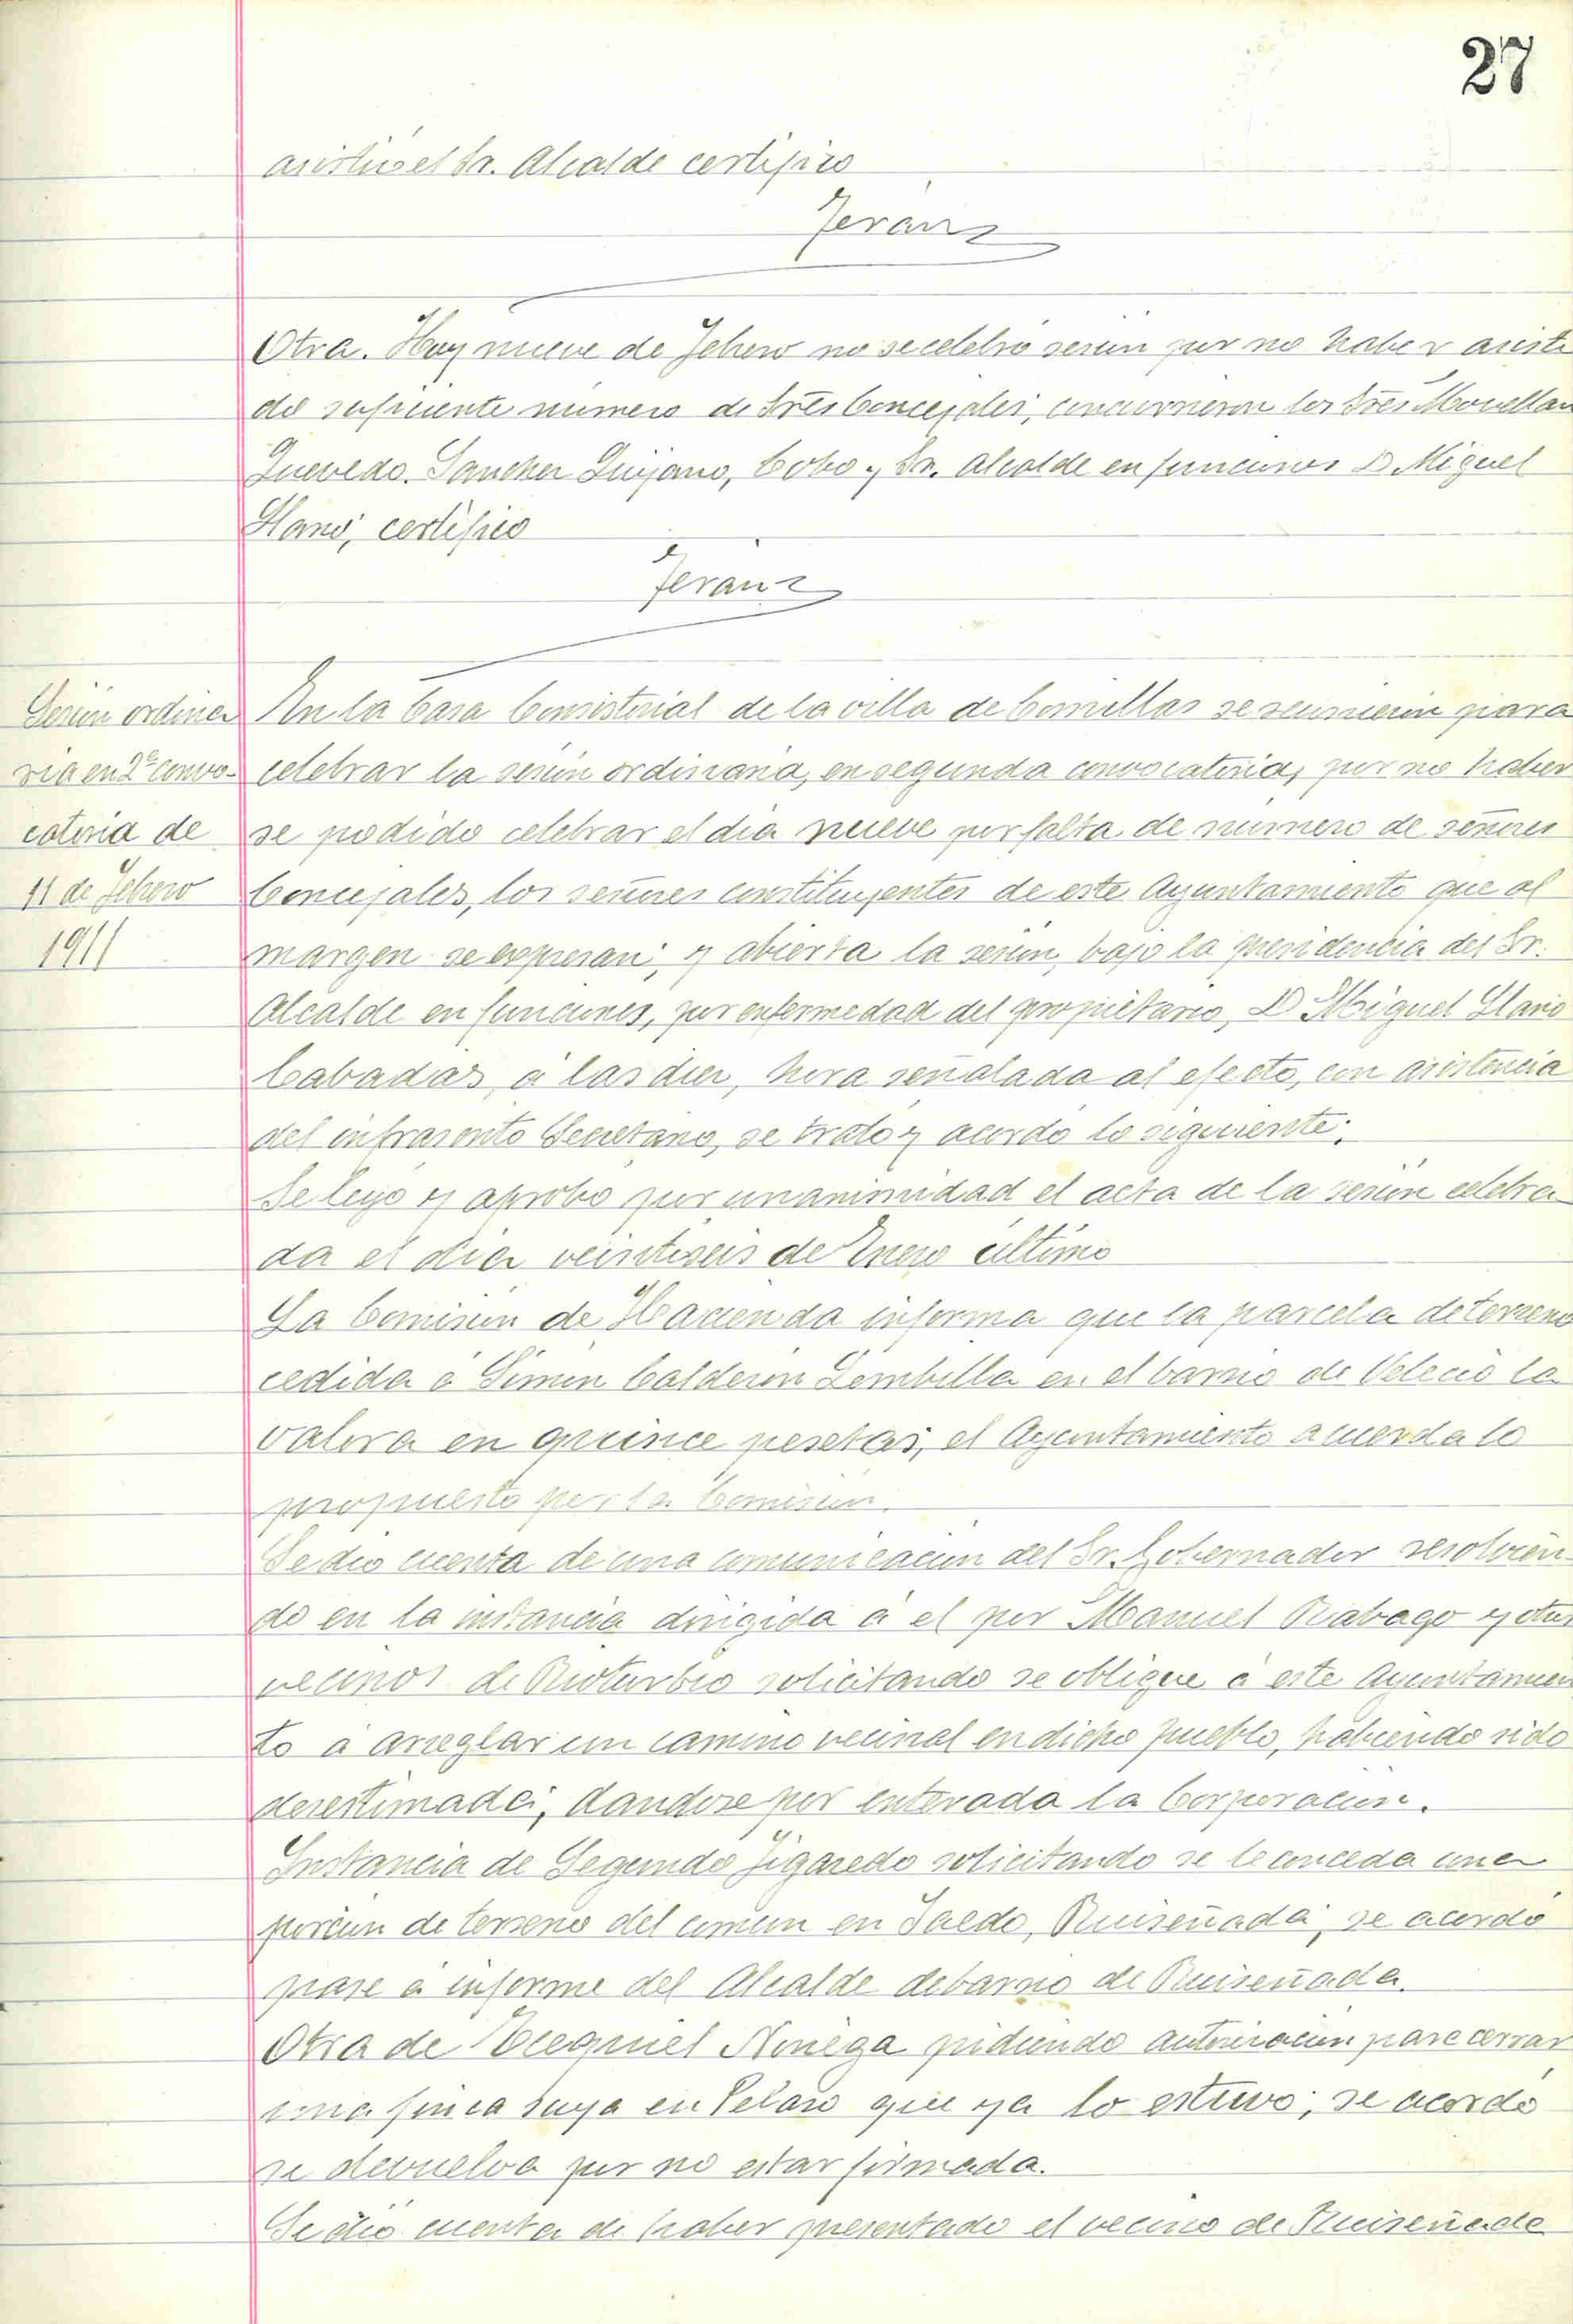 27
asistió el Sr. Alcalde certifico
Jerán
Otra. Hoy nueve de Febrero no se celebró sesión por no haber asisti
do suficiente número de Sres Concejales, concurrieron los Sres Movellan
Quevedo, Sanchez Quijano, Cobo y Sr. Alcalde en funciones D. Miguel
Llano, certifico
Jerán
Sesión ordina
ria en 2ª convo-
catoria de
11 de Febrero
1911
En la Casa Consistorial de la villa de Comillas se reunieron para
celebrar la sesión ordinaria, en segunda convocatoria, por no haber
se podido celebrar el dia nueve por falta de número de señores
Concejales, los señores constituyentes de este Ayuntamiento que al
margen se expresan; y abierta la sesión, bajo la presidencia del Sr.
Alcalde en funciones, por enfermedad del propietario, D Miguel Llano
Cabadas, á las diez, hora señalada al efecto, con asistencia
del infrascrito Secretario, se trató y acordó lo siguiente:
Se leyó y aprobó por unanimidad el acta de la sesión celebra
da el dia veintiseis de Enero último
La Comisión de Hacienda informa que la parcela de terreno
cedida á Simón Calderón Lombilla en el barrio de Velecio la
valora en quince pesetas, el Ayuntamiento acuerda lo
propuesto por la Comisión.
Se dió cuenta de una comunicación del Sr. Gobernador resolvien-
do en la instancia dirigida á el por Manuel Rabago y otros
vecinos de Rioturbio solicitando se obligue á este Ayuntamien
to á arreglar un camino vecinal en dicho pueblo, habiendo sido
desestimada, dandose por enterada la Corporación.
Instancia de Segundo Figaredo solicitando se le conceda una
porción de terreno del común en Saedo, Ruiseñada; se acordó
pase á informe del Alcalde de barrio de Ruiseñada.
Otra de Ecequiel Noriega pidiendo autorización para cerrar
una finca suya en Velao que ya lo estuvo; se acordó
se devuelva por no estar firmada.
Se dió cuenta de haber presentado el vecino de Ruiseñada